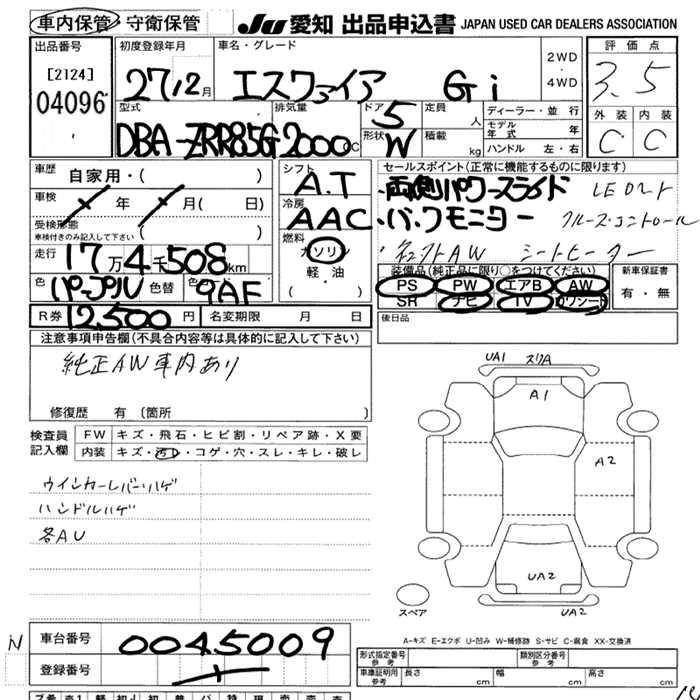 車内保管・守衛保管
JU 愛知 出品申込書 JAPAN USED CAR DEALERS ASSOCIATION
出品番号 初度登録年月 車名・グレード 2WD ・ 4WD 評価点
[2124]
04096
27 12月 エスクァイア Gi 3.5
外装 内装
C C
型式 排気量 ドア 5 定員 人 ディーラー・並行
モデル年式 年
DBA-ZRR85G 2000cc 形状 W 積載 kg ハンドル 左・右
車歴 自家用・( ) シフト A.T セールスポイント(正常に機能するものに限ります)
・両側パワースライド LEDライト
車検 年 月( 日) 冷房 AAC ・バックモニター クルーズ・コントロール
受検形態
車検付きのみ記入して下さい ( )
燃料 ガソリン 軽・油 ・( )
・社外AW シートヒーター
走行 17万4千508km
装備品(純正品に限り○をつけてください) 新車保証書
PS PW エアB AW 有・無
SR ナビ TV カワシート
色 パープル 色替 9AF
R券 12,500円 名変期限 月 日 後日品
注意事項申告欄(不具合内容等は具体的に記入して下さい)
純正AW車内あり
修復歴 有 (箇所 )
検査員記入欄 FW キズ・飛石・ヒビ割・リペア跡・X要
内装 キズ・汚レ・コゲ・穴・スレ・キレ・破レ
ウインカーレバーハゲ
ハンドルハゲ
各AU
UA1 スリA
A1
A2
UA2
UA2
スペア
A-キズ E-エクボ U-凹み W-補修跡 S-サビ C-腐食 XX-交換済
N 車台番号 0045009
登録番号
形式指定番号 参考 類別区分番号 参考
車庫証明用 参考 長さ cm 幅 cm 高さ cm